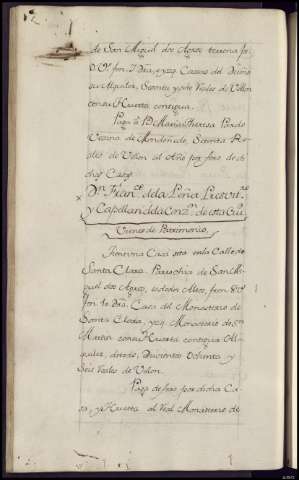 de San Miguel dos Agros terrena fr.
D. Vn. fon. J. Dra. y yzq. Casas del
su Alquiler, Setenta y ocho Reales de Vellon
con su Huerta contigua.
Paga à D. Maria Theresa Pardo
Vecina de Mondoñedo, Setenta Rea
les de Vellon al Año por foro de di
cha Casa.
x Dn. Franco. de la Peña Presvit.ro
y Capellan de la Conz.n de esta Ciu.d
Vienes de Patrimonio.
Tiene una Casa sita en la Calle de
Santa Clara Parrochia de San Mi
guel dos Agros, de un Alto, fron. 8 V.s
fon. 12 Dra. Casa del Monasterio de
Santa Clara, yzq. Monasterio de Sn.
Martin con su Huerta contigua Al
quiler, de todo, Ducientos Ochenta y
Seis Reales de Vellon.
Paga de foro por dicha Ca
sa, y Huerta al Real Monasterio de